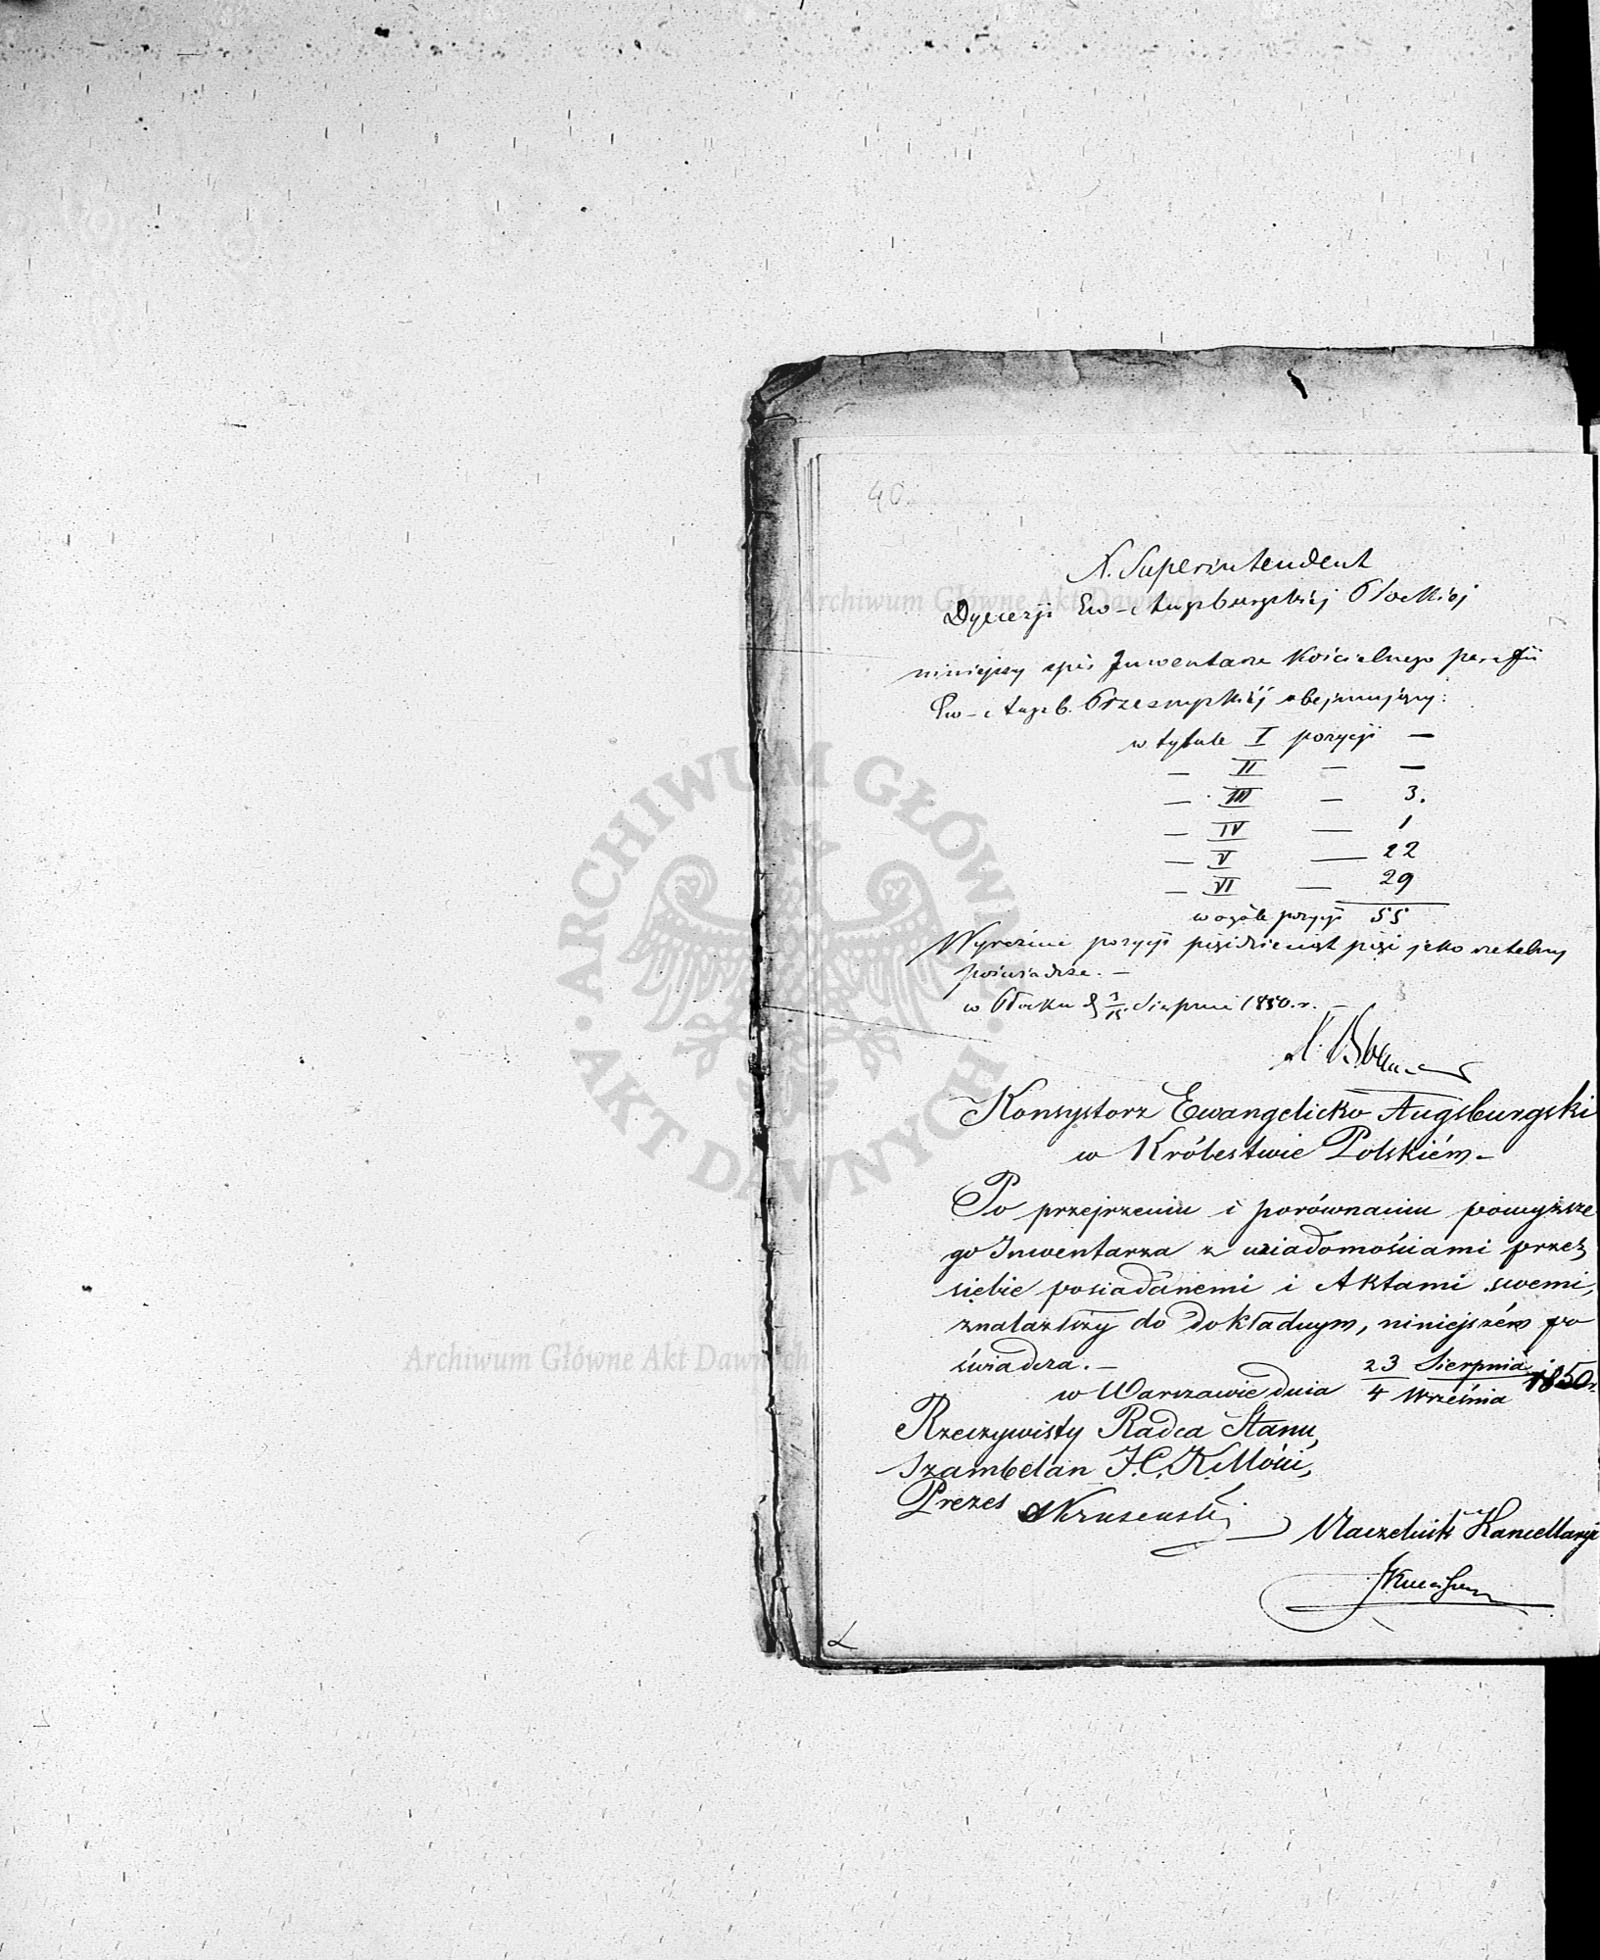 40.
N. Superintendent
Dyecezji Ew-Augsburgskiej Płockiej
niniejszy spis Inwentarza Kościelnego parafii
Ew-Augsb. Przasnyskiej obejmujący:
w tytule I pozycji —
— II — —
— III — 3.
— IV — 1
— V — 22
— VI — 29
w ogóle pozycji 55
Wyraźnie pozycji pięćdziesiąt pięć jako rzetelny
poświadcza. —
w Płocku d. 3/15 Sierpnia 1850. r. —
Konsystorz Ewangelicko Augsburgski
w Królestwie Polskiém –
Po przejrzeniu i porównaniu powyższe
go Inwentarza z wiadomościami przez
siebie posiadanemi i Aktami swemi,
znalazłszy do dokładnym, niniejszém po
świadcza. —
w Warszawie dnia 23 Sierpnia / 4 Września 1850 r.
Rzeczywisty Radca Stanu,
Szambelan J.C.K. Mości,
Prezes
Naczelnik Kancellaryi
Archiwum Główne Akt Dawnych
ARCHIWUM GŁÓWNE · AKT DAWNYCH ·
Archiwum Główne Akt Dawnych